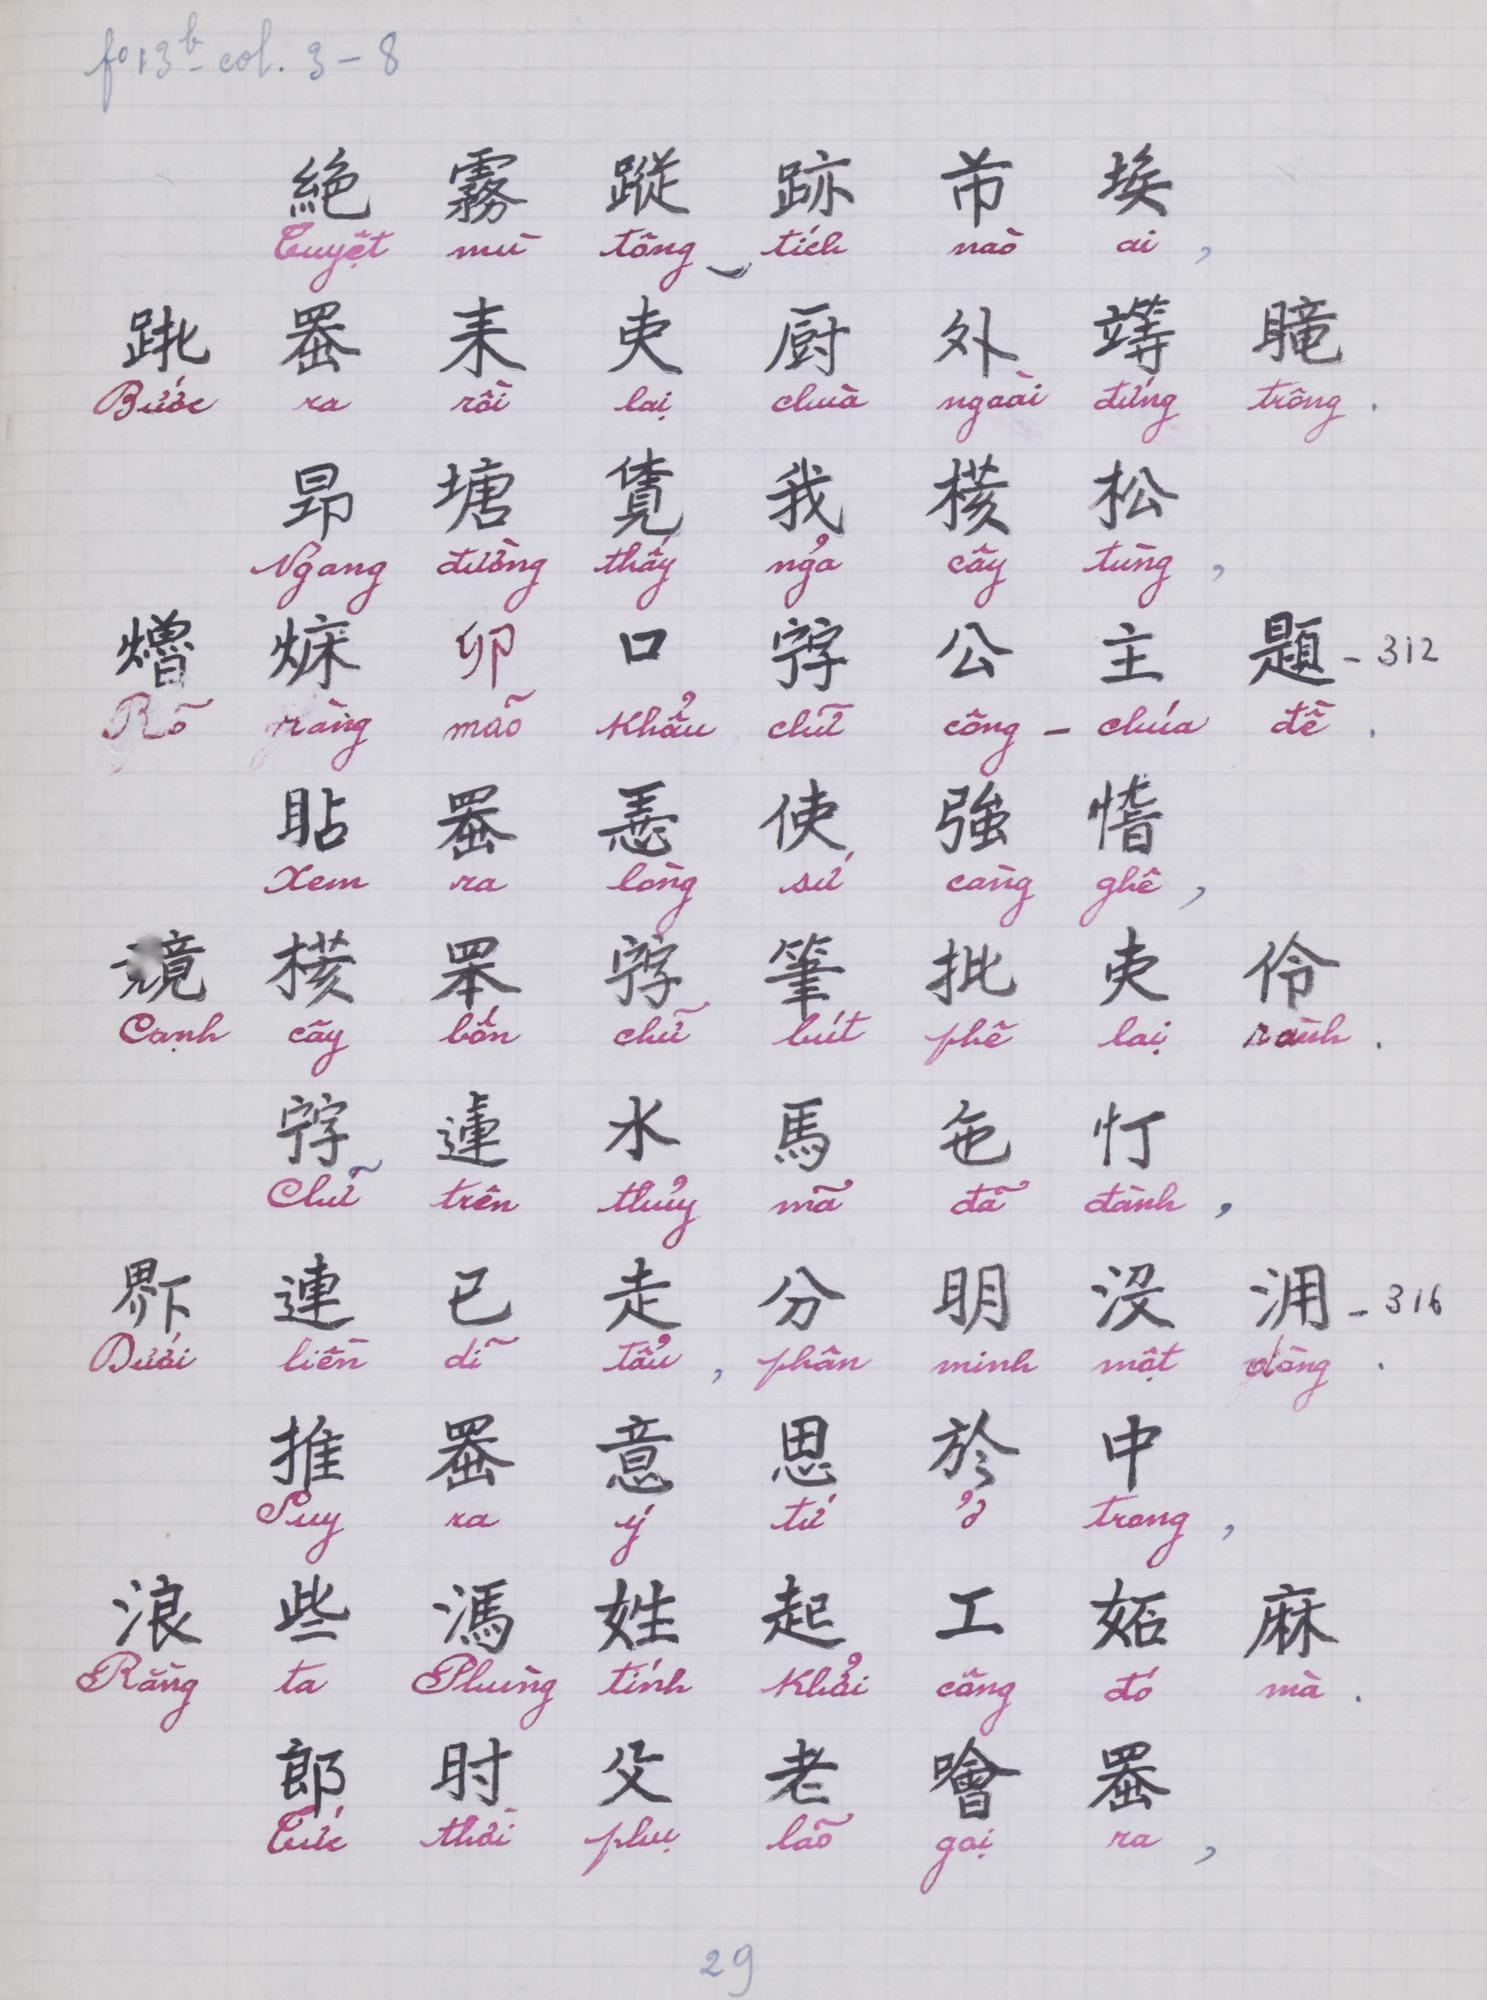 fº 13b - col. 3 - 8
絶 霧 蹤 跡 芇 埃
Tuyệt mù tông‿tích nào ai ,
𨀈 𦋦 耒 吏 厨 外 䇏 瞳
Bước ra rồi lại chùa ngoài đứng trông .
昂 塘 𧡊 我 𣘃 松
Ngang đường thấy ngả cây tùng ,
𤑟 𤉜 卯 口 𡨸 公 主 題 - 312
Rõ ràng mão khẩu chữ công - chúa đề .
䀡 𦋦 𢚸 使 強 𢟞
Xem ra lòng sứ càng ghê ,
𥚯 𣘃 𦊚 𡨸 筆 批 吏 伶
Cạnh cây bốn chữ bút phê lại rành .
𡨸 𨕭 水 馬 㐌 忊
Chữ trên thủy mã đã đành ,
𤲂 連 已 走 分 明 没 㳥 - 316
Dưới liền dĩ tẩu , phân minh một dòng .
推 𦋦 意 思 於 中
Suy ra ý tứ ở trong ,
浪 些 馮 姓 起 工 妬 麻
Rằng ta Phùng tính Khởi công đó mà .
郎 时 父 老 噲 𦋦
Tức thời phụ lão gọi ra ,
29